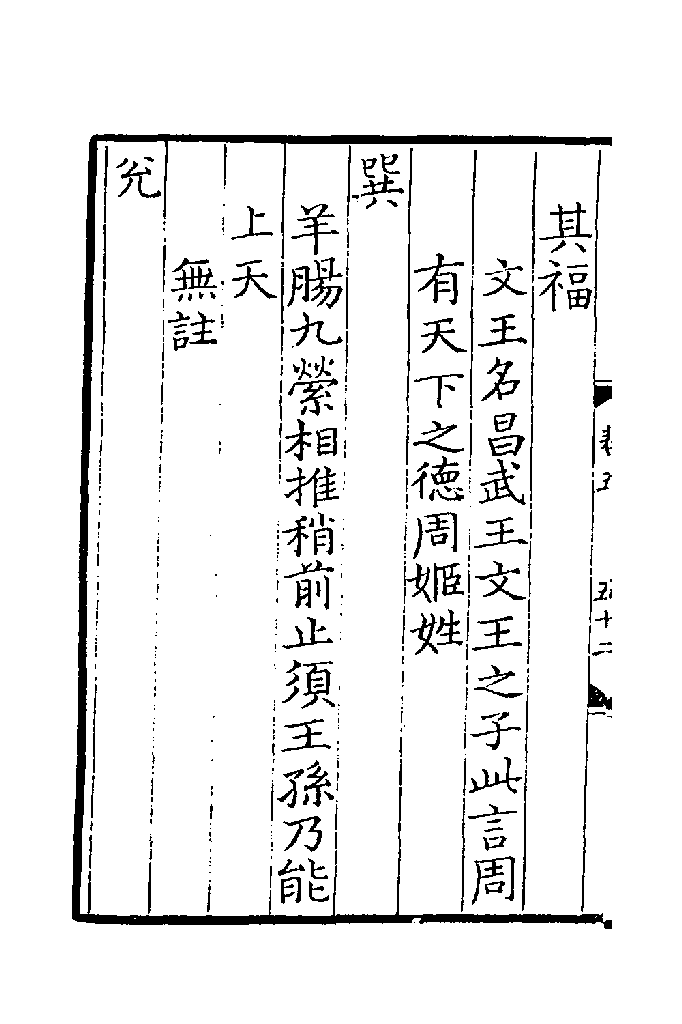 其福
文王名昌武王文王之子此言周
有天下之徳周姬姓
巽
羊腸九縈相推稍前止須王孫乃能
上天
無註
兊
五十二